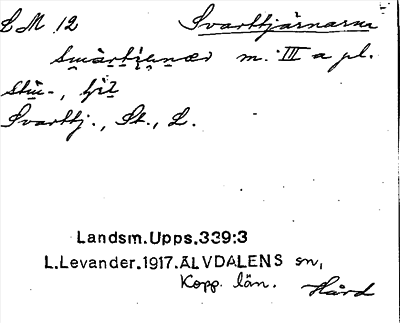 LM 12 Svarttjärnarna
m. III a pl.
Svarttj., St., L.
Landsm.Upps.339:3
L.Levander.1917.ÄLVDALENS sn,
Kopp. län.
Hård